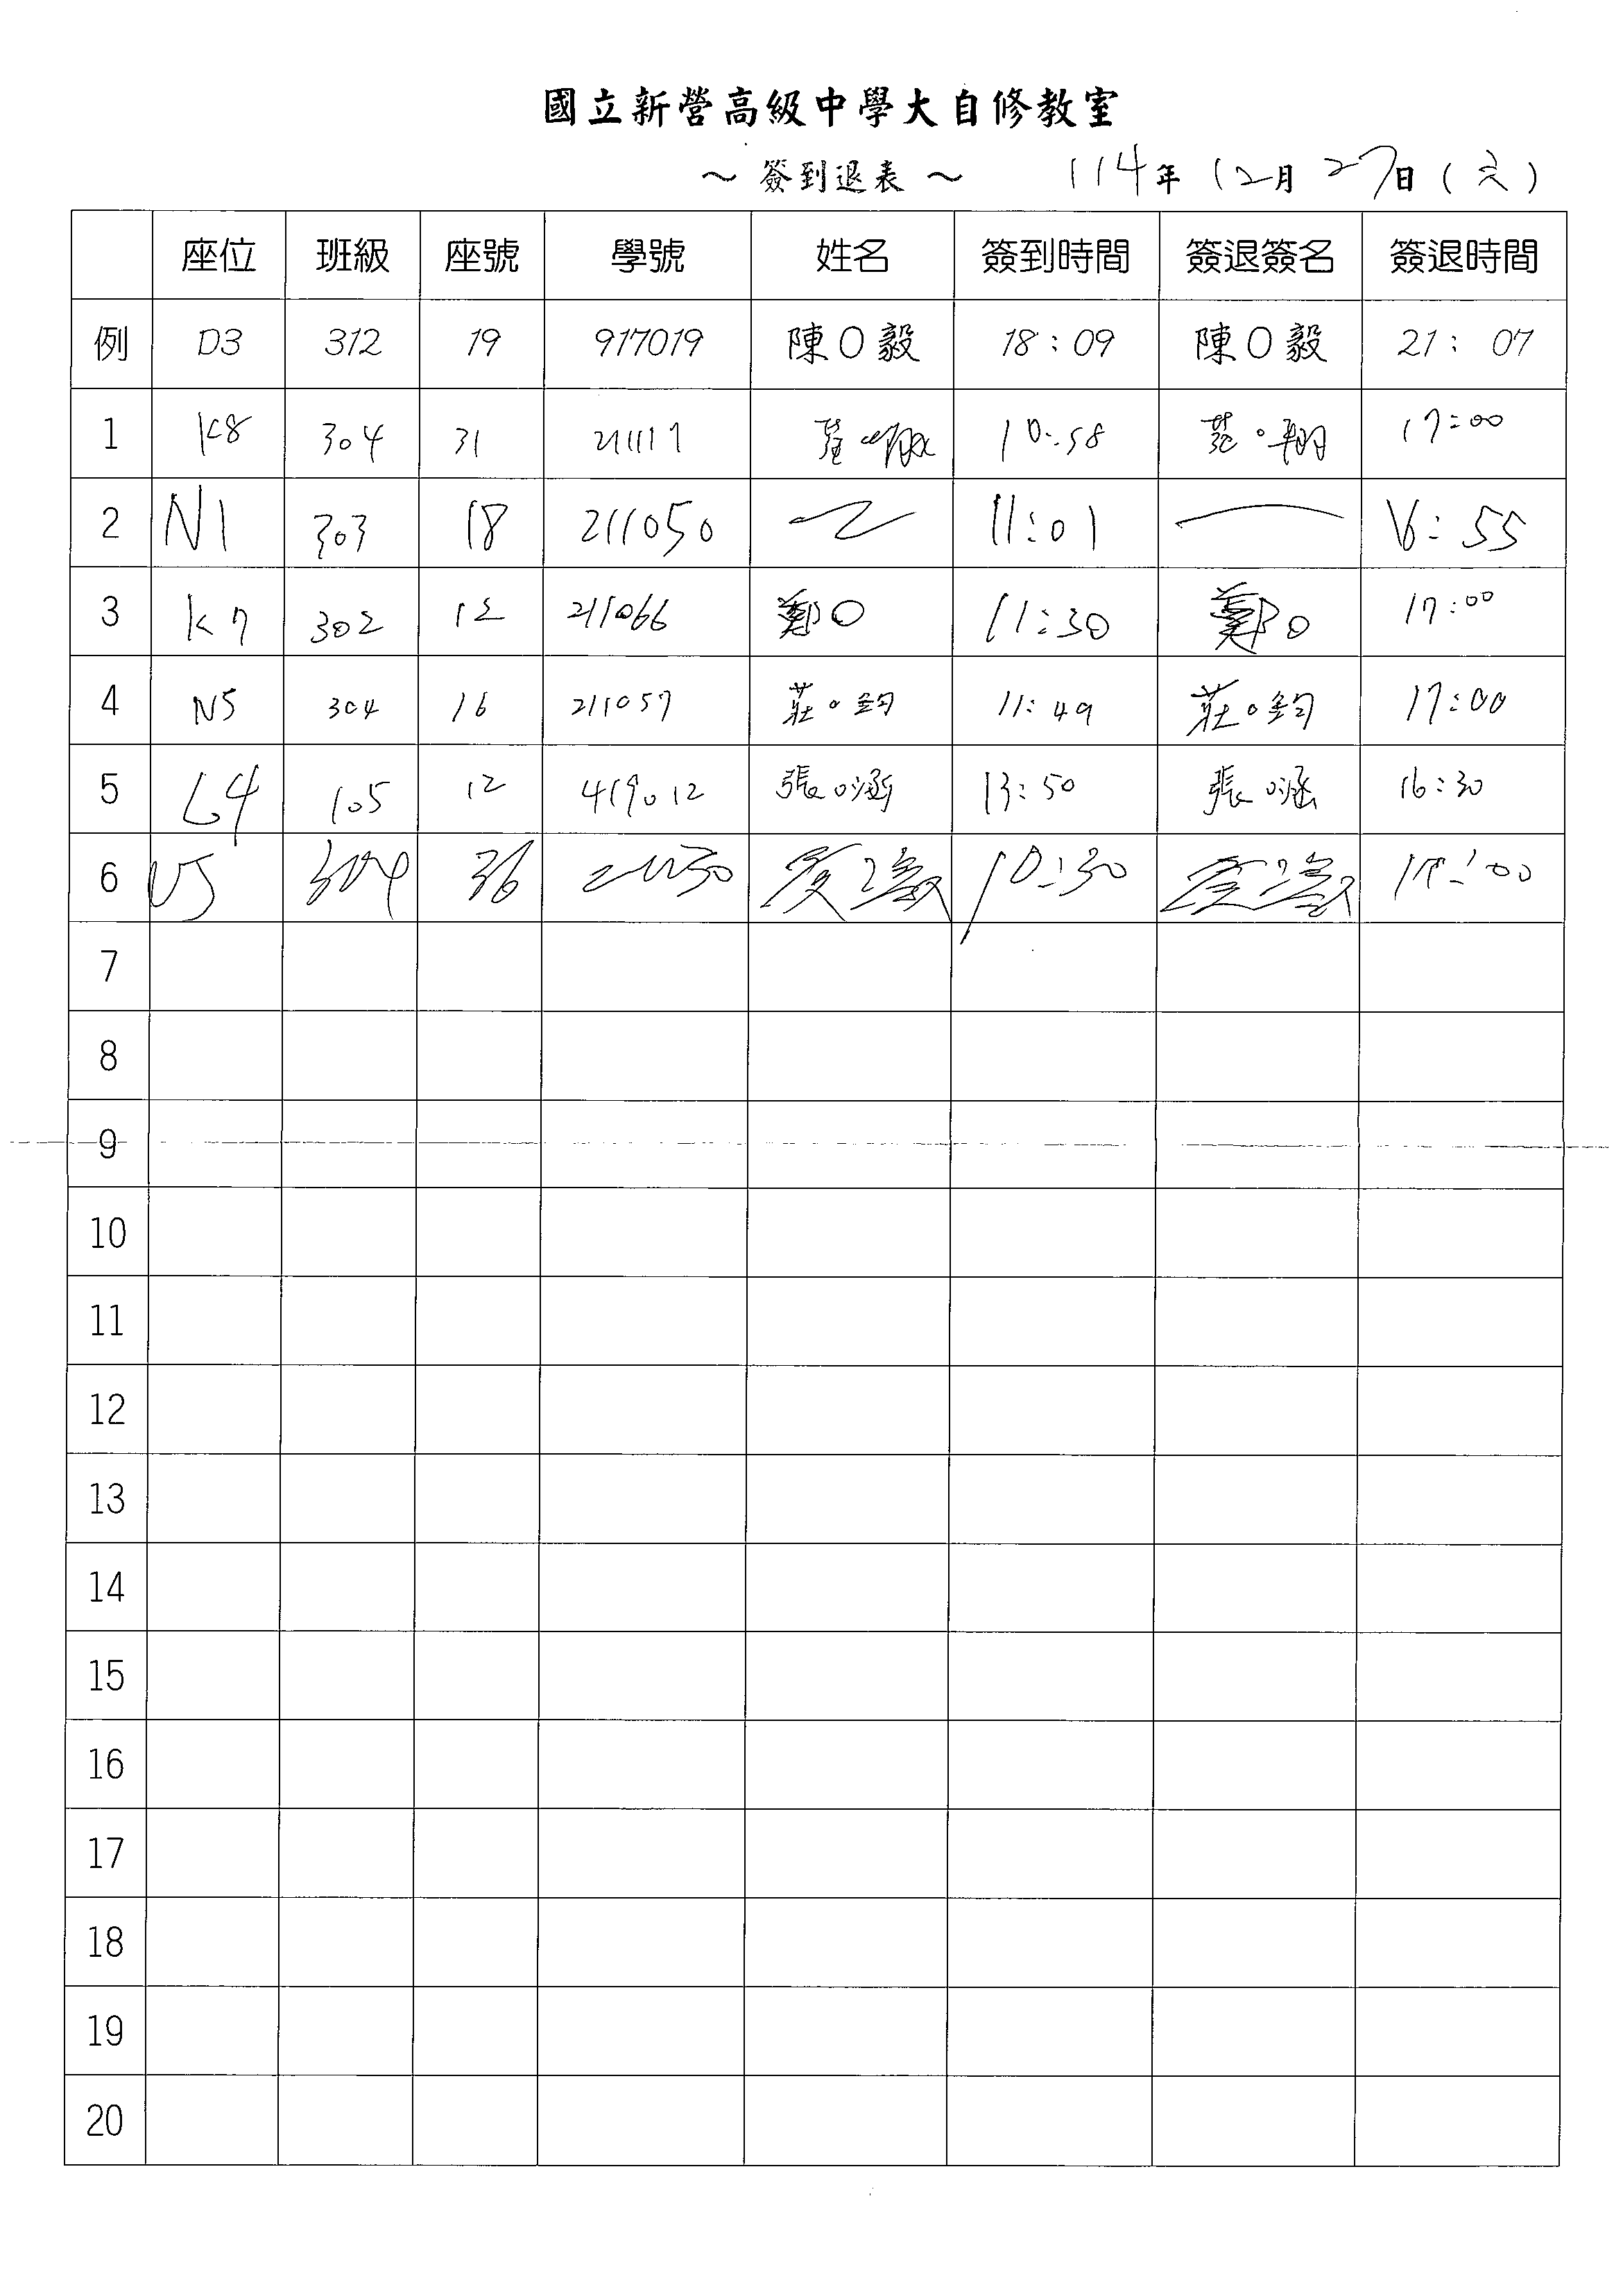 國立新營高級中學大自修教室
～ 簽到退表 ～ 114年 12月 27日 (六)
座位 班級 座號 學號 姓名 簽到時間 簽退簽名 簽退時間
例 D3 312 19 917019 陳O毅 18：09 陳O毅 21： 07
1 K8 304 31 211117 10:58 17:00
2 N1 303 18 211050 11:01 16:55
3 K7 302 12 211066 鄭O 11:30 鄭O 17:00
4 N5 304 16 211057 莊O鈞 11:49 莊O鈞 17:00
5 L4 105 12 419012 張O涵 13:50 張O涵 16:30
6 304 36 10:30
7
8
9
10
11
12
13
14
15
16
17
18
19
20